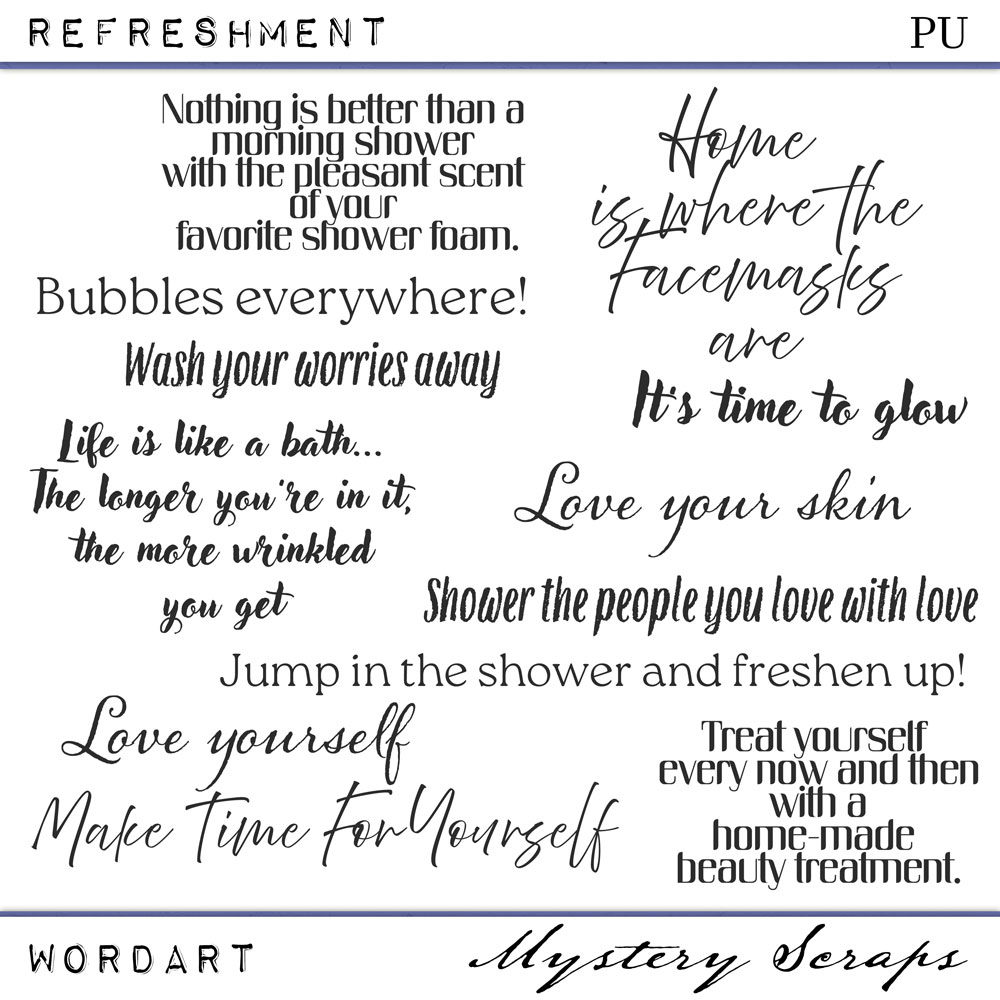 REFRESHMENT
PU
Nothing is better than a
morning shower
with the pleasant scent
of your
favorite shower foam.
Home
is where the
Facemasks
are
Bubbles everywhere!
Wash your worries away
It's time to glow
Life is like a bath...
The longer you're in it,
the more wrinkled
you get
Love your skin
Shower the people you love with love
Jump in the shower and freshen up!
Love yourself
Make Time For Yourself
Treat yourself
every now and then
with a
home-made
beauty treatment.
WORDART
Mystery Scraps